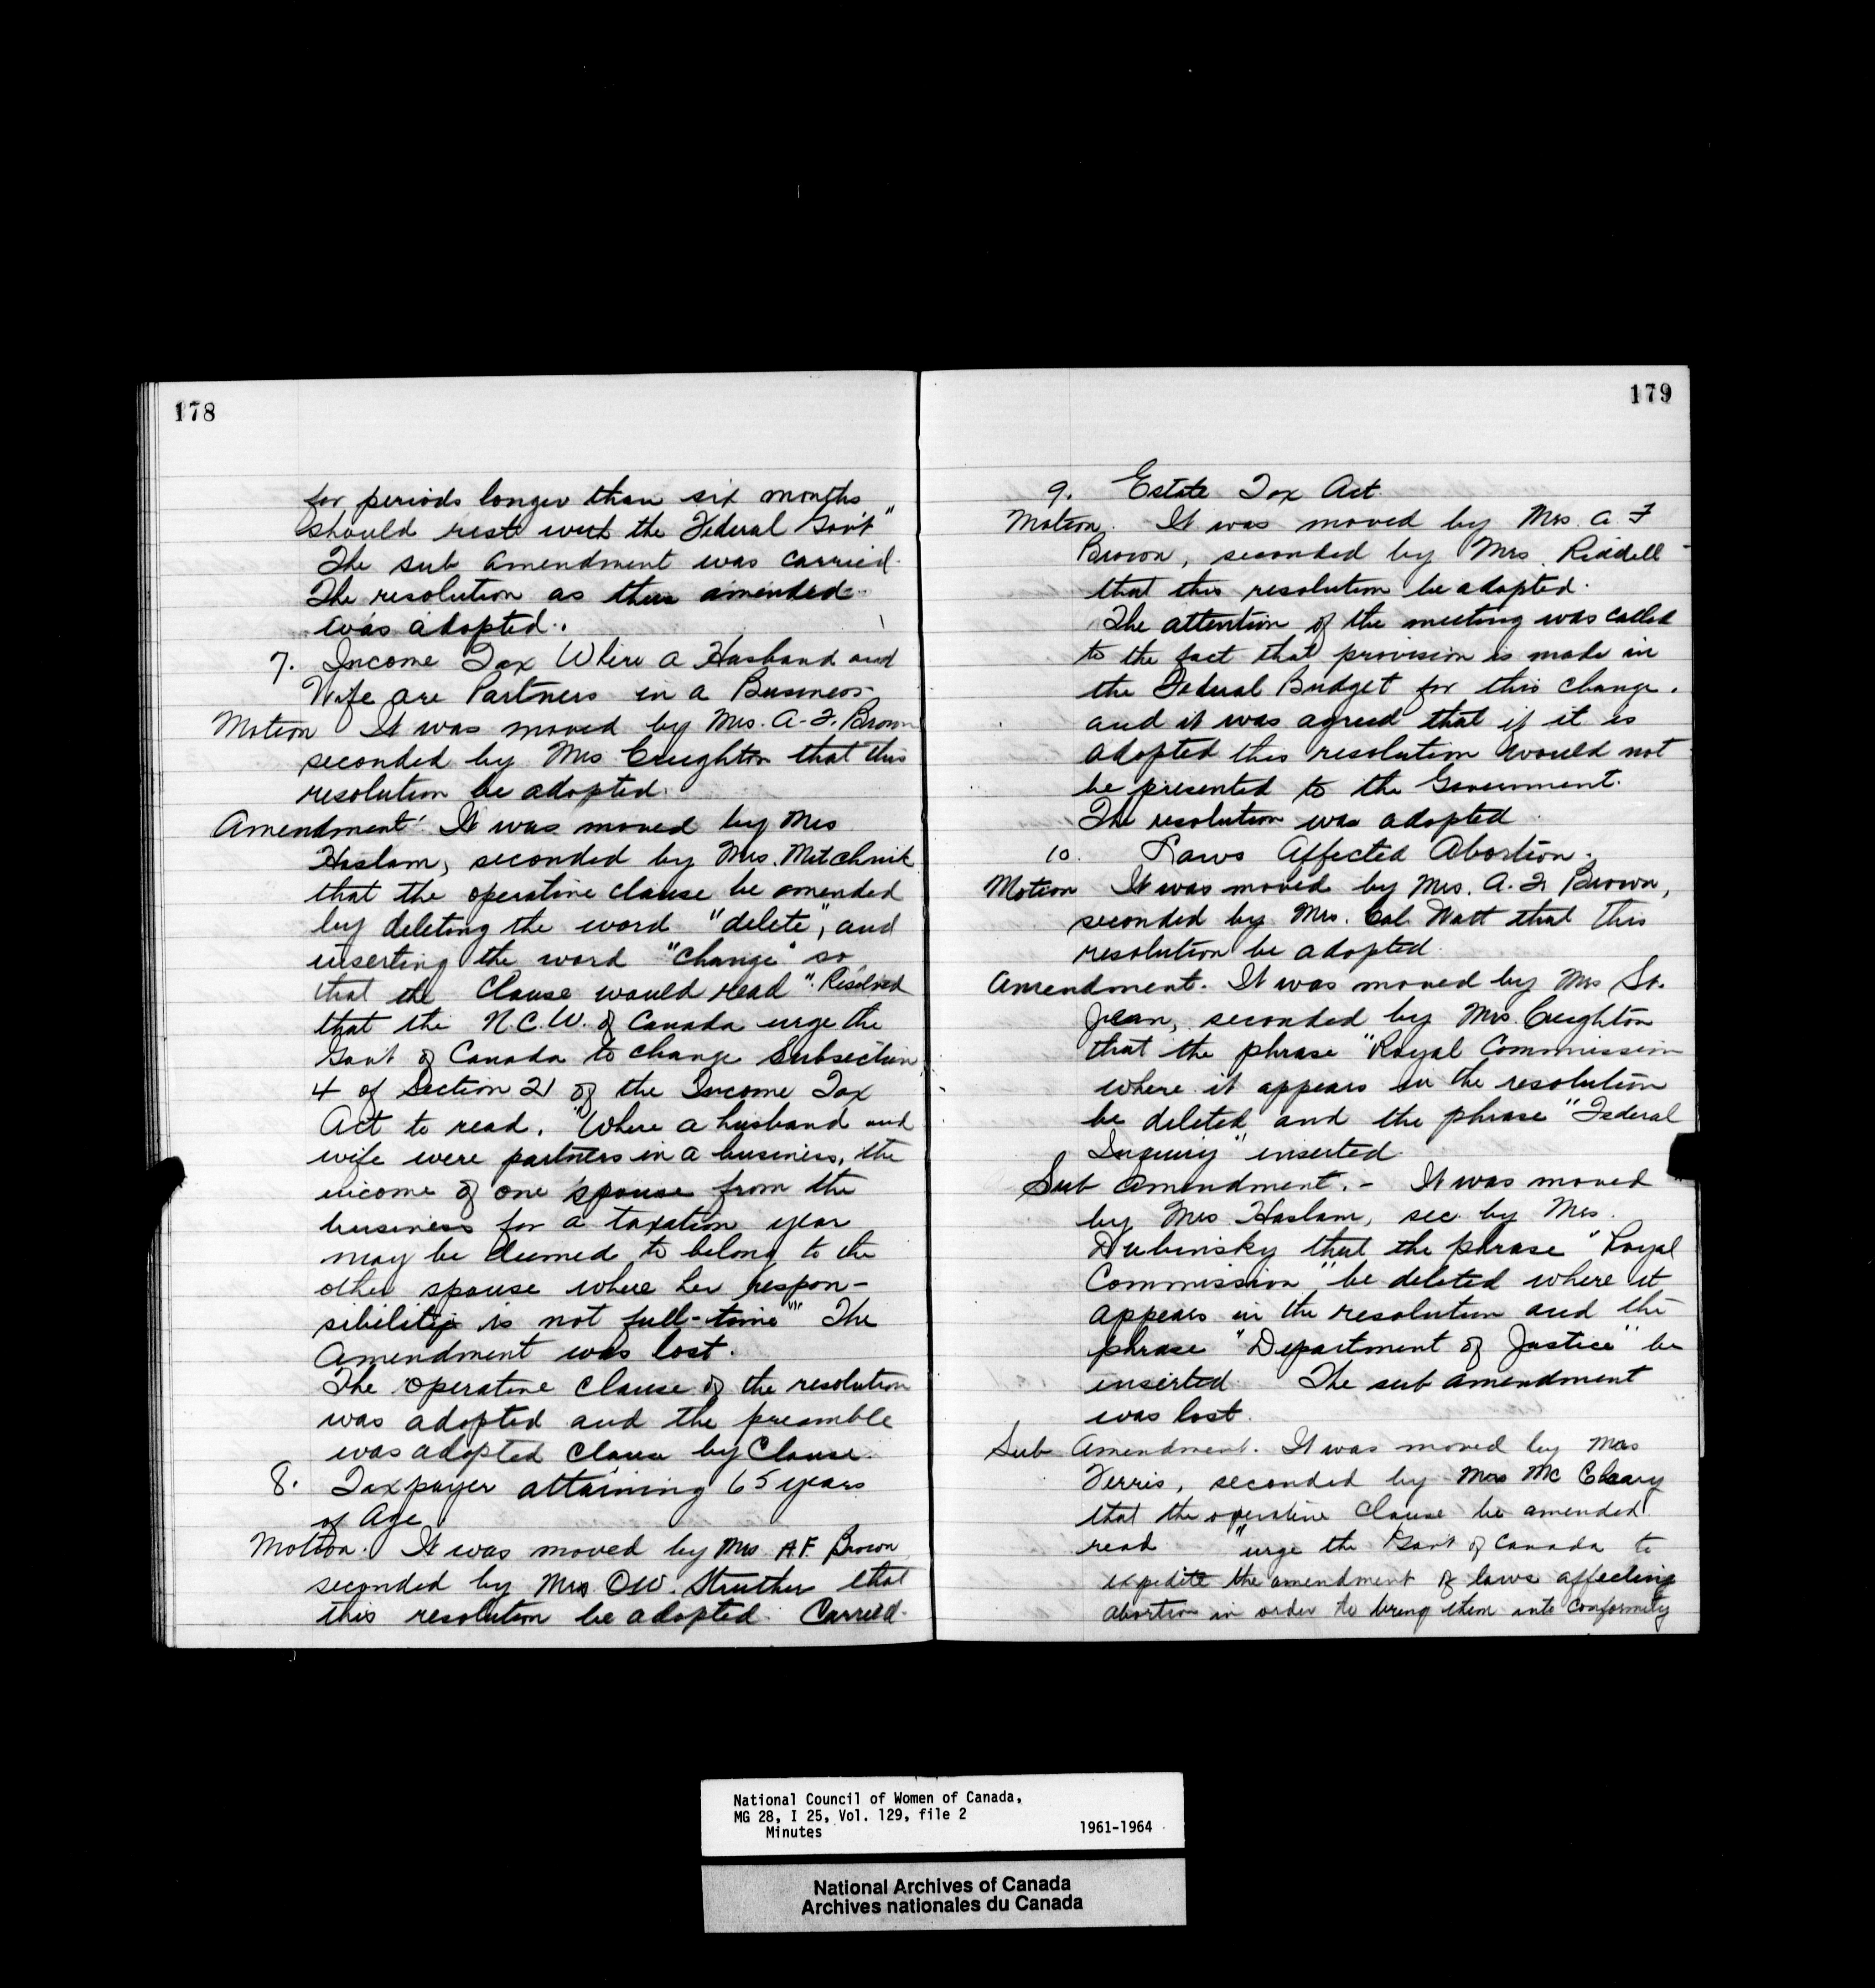 178
for periods longer than six months
should rest with the Federal Gov't"
The sub amendment was carried.
The resolution as thus amended
was adopted.
7. Income Tax Where a Husband and
Wife are Partners in a Business
Motion It was moved by Mrs. A. F. Brown
seconded by Mrs Creighton that this
resolution be adopted.
Amendment It was moved by Mrs
Haslam, seconded by Mrs. Mitchnik
that the operative clause be amended
by deleting the word "delete", and
inserting the word "change" so
that the Clause would read ". Resolved
that the N.C.W. of Canada urge the
Gov't of Canada to change Subsection
4 of Section 21 of the Income Tax
Act to read, "Where a husband and
wife were partners in a business, the
income of one spouse from the
business for a taxation year
may be deemed to belong to the
other spouse where her respon-
sibility is not full-time"" The
Amendment was lost.
The operative clause of the resolution
was adopted and the preamble
was adopted Clause by Clause.
8. Taxpayer attaining 65 years
of Age
Motion. It was moved by Mrs A.F. Brown
seconded by Mrs O.W. Struther that
this resolution be adopted. Carried.
179
9. Estate Tax Act.
Motion. It was moved by Mrs. A. F
Brown, seconded by Mrs. Riddell
that this resolution be adopted.
The attention of the meeting was called
to the fact that provision is made in
the Federal Budget for this change.
and it was agreed that if it is
adopted this resolution would not
be presented to the Government.
The resolution was adopted
10. Laws Affected Abortion.
Motion It was moved by Mrs. A. F. Brown,
seconded by Mrs. Cal Watt that this
resolution be adopted.
Amendment. It was moved by Mrs St.
Jean, seconded by Mrs. Creighton
that the phrase "Royal Commission
where it appears in the resolution
be deleted and the phrase "Federal
Inquiry" inserted.
Sub Amendment. - It was moved
by Mrs Haslam, sec. by Mrs.
Dubinsky that the phrase "Royal
Commission" be deleted where it
appears in the resolution and the
phrase "Department of Justice" be
inserted. The sub amendment
was lost.
Sub Amendment. It was moved by Mrs
Ferris, seconded by Mrs Mc Cleary
that the operative Clause be amended
read "urge the Gov't of Canada to
expedite the amendment of laws affecting
abortion in order to bring them into conformity
National Council of Women of Canada,
MG 28, I 25, Vol. 129, file 2
Minutes 1961-1964
National Archives of Canada
Archives nationales du Canada